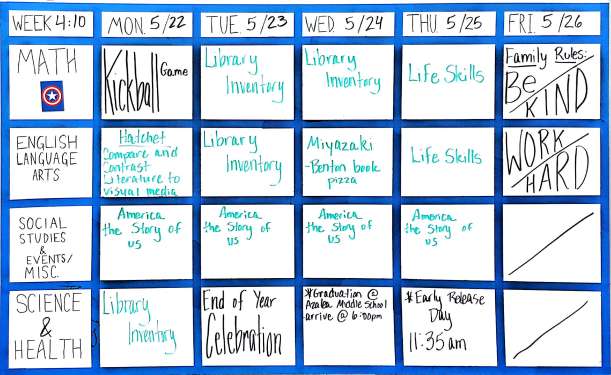 WEEK 4:10
MON. 5/22
TUE. 5/23
WED. 5/24
THU. 5/25
FRI. 5/26
MATH
Kickball Game
Library
Inventory
Library
Inventory
Life Skills
Family Rules:
Be
KIND
ENGLISH
LANGUAGE
ARTS
Hatchet
Compare and
Contrast
Literature to
visual media
Library
Inventory
Miyazaki
-Benton book
pizza
Life Skills
WORK
HARD
SOCIAL
STUDIES
&
EVENTS/
MISC.
America
the Story of
us
America
the Story of
us
America
the Story of
us
America
the Story of
us
SCIENCE
&
HEALTH
Library
Inventory
End of Year
Celebration
*Graduation @
Azalea Middle School
arrive @ 6:00pm
*Early Release
Day
11:35 am